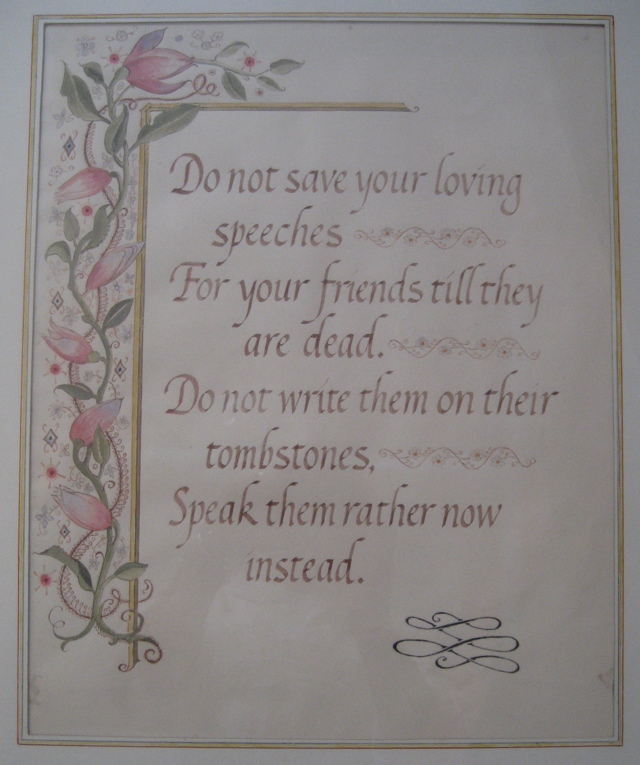 Do not save your loving
speeches
For your friends till they
are dead.
Do not write them on their
tombstones,
Speak them rather now
instead.